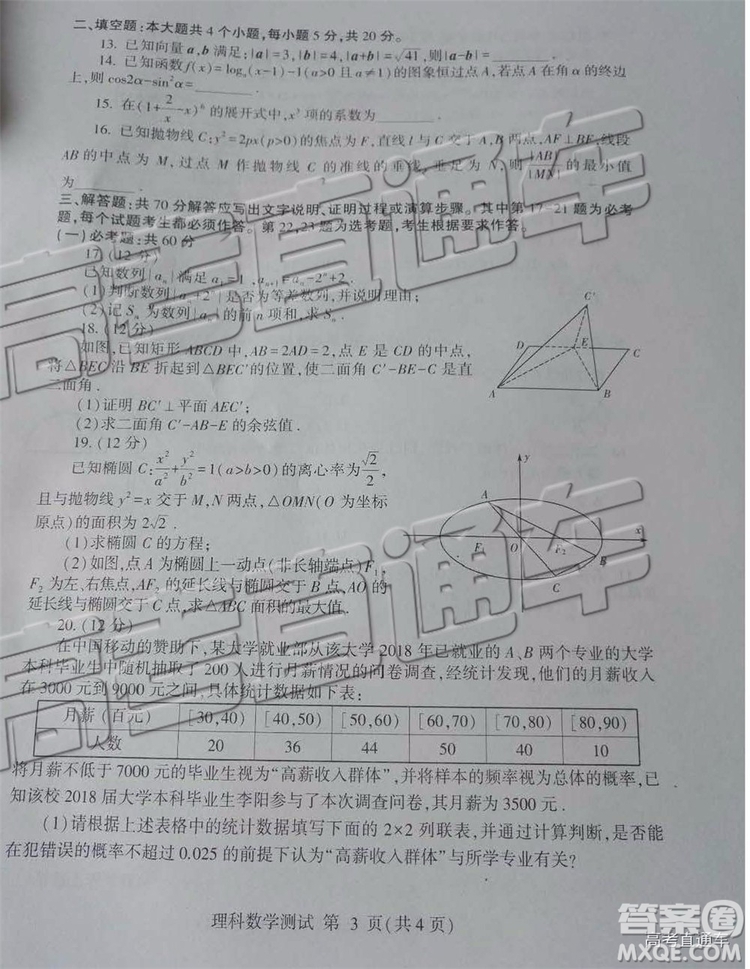 二、填空题:本大题共4个小题,每小题5分,共20分。
13. 已知向量a,b满足:|a|=3,|b|=4,|a+b|=√41,则|a-b|=______.
14. 已知函数f(x)=logₐ(x-1)-1(a>0且a≠1)的图象恒过点A,若点A在角α的终边
上,则cos2α-sin²α=______.
15. 在(1+2/x-x)⁶的展开式中,x³项的系数为______.
16. 已知抛物线C:y²=2px(p>0)的焦点为F,直线l与C交于A,B两点,AF⊥BF,线段
AB的中点为M,过点M作抛物线C的准线的垂线,垂足为N,则|AB|/|MN|的最小值
为______.
三、解答题:共70分解答应写出文字说明、证明过程或演算步骤。其中第17-21题为必考
题,每个试题考生都必须作答。第22,23题为选考题,考生根据要求作答。
(一)必考题:共60分
17. (12分)
已知数列{aₙ}满足a₁=1,aₙ₊₁=aₙ-2ⁿ+2.
(1)判断数列{aₙ+2ⁿ}是否为等差数列,并说明理由;
(2)记Sₙ为数列{aₙ}的前n项和,求Sₙ.
18. (12分)
如图,已知矩形ABCD中,AB=2AD=2,点E是CD的中点,
将△BEC沿BE折起到△BEC'的位置,使二面角C'-BE-C是直
二面角.
(1)证明BC'⊥平面AEC';
(2)求二面角C'-AB-E的余弦值.
C'
D
E
C
A
B
19. (12分)
已知椭圆C:x²/a²+y²/b²=1(a>b>0)的离心率为√2/2
且与抛物线y²=x交于M,N两点,△OMN(O为坐标
原点)的面积为2√2.
(1)求椭圆C的方程;
(2)如图,点A为椭圆上一动点(非长轴端点)F₁,
F₂为左、右焦点,AF₂的延长线与椭圆交于B点,AO的
延长线与椭圆交于C点,求△ABC面积的最大值.
y
A
x
F₁
O
F₂
B
C
20. (12分)
在中国移动的赞助下,某大学就业部从该大学2018年已就业的A、B两个专业的大学
本科毕业生中随机抽取了200人进行月薪情况的问卷调查,经统计发现,他们的月薪收入
在3000元到9000元之间,具体统计数据如下表:
月薪(百元) [30,40) [40,50) [50,60) [60,70) [70,80) [80,90)
人数 20 36 44 50 40 10
将月薪不低于7000元的毕业生视为“高薪收入群体”,并将样本的频率视为总体的概率,已
知该校2018届大学本科毕业生李阳参与了本次调查问卷,其月薪为3500元.
(1)请根据上述表格中的统计数据填写下面的2×2列联表,并通过计算判断,是否能
在犯错误的概率不超过0.025的前提下认为“高薪收入群体”与所学专业有关?
理科数学测试 第 3 页(共4页)
高考直通车
高考直通车
答案圈
高考直通车
MXQE.COM